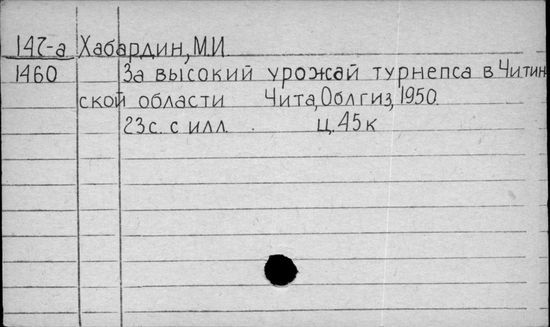 147-а Хабардин, М.И.
1460 За высокий урожай турнепса в Читин
ской области Чита, Облгиз, 1950.
23с. с илл. ц. 45к